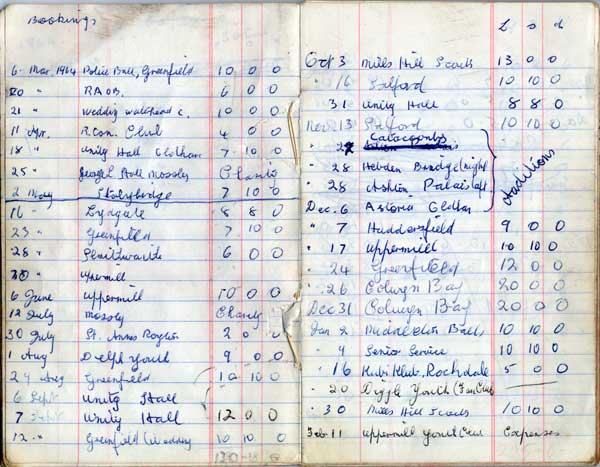 Bookings
6 Mar. 1964 Police Ball, Greenfield 10 0 0
20 " R.A.O.B. 6 0 0
21 " Wedding c. 10 0 0
11 Apr. R. Con. Club 4 0 0
18 " Unity Hall Oldham 7 10 0
25 " Hall Mossley
2 May Stalybridge 7 10 0
16 " Lydgate 8 8 0
23 " Greenfield 7 10 0
28 " Slaithwaite 6 0 0
30 " Uppermill
6 June Uppermill 10 0 0
12 July Mossley Charity
30 July St. Annes Royton 2 0 0
1 Aug Delph Youth 9 0 0
29 Aug Greenfield 10 10 0
6 Sept Unity Hall
7 Sept Unity Hall 12 0 0
12 " Greenfield (Wedding 10 10 0
£ s d
Oct 3 Miles Hill Scouts 13 0 0
" 16 Salford 10 10 0
31 Unity Hall 8 8 0
Nov 13 Salford 10 10 0
" 27 Catacombs
" 28 Hebden Bridge (night
" 28 Ashton Palais (aft
Dec. 6 Astoria Oldham
Auditions
" 7 Huddersfield 9 0 0
" 17 Uppermill 10 10 0
" 24 Greenfield 12 0 0
" 26 Colwyn Bay 20 0 0
Dec 31 Colwyn Bay 20 0 0
Jan 2 Middleton Baths 10 10 0
" 9 Senior Service 10 10 0
" 16 Kubi Klub, Rochdale 5 0 0
" 20 Diggle Youth (Fan Club
" 30 Miles Hill Scouts 10 10 0
Feb 11 Uppermill Youth Club Expenses